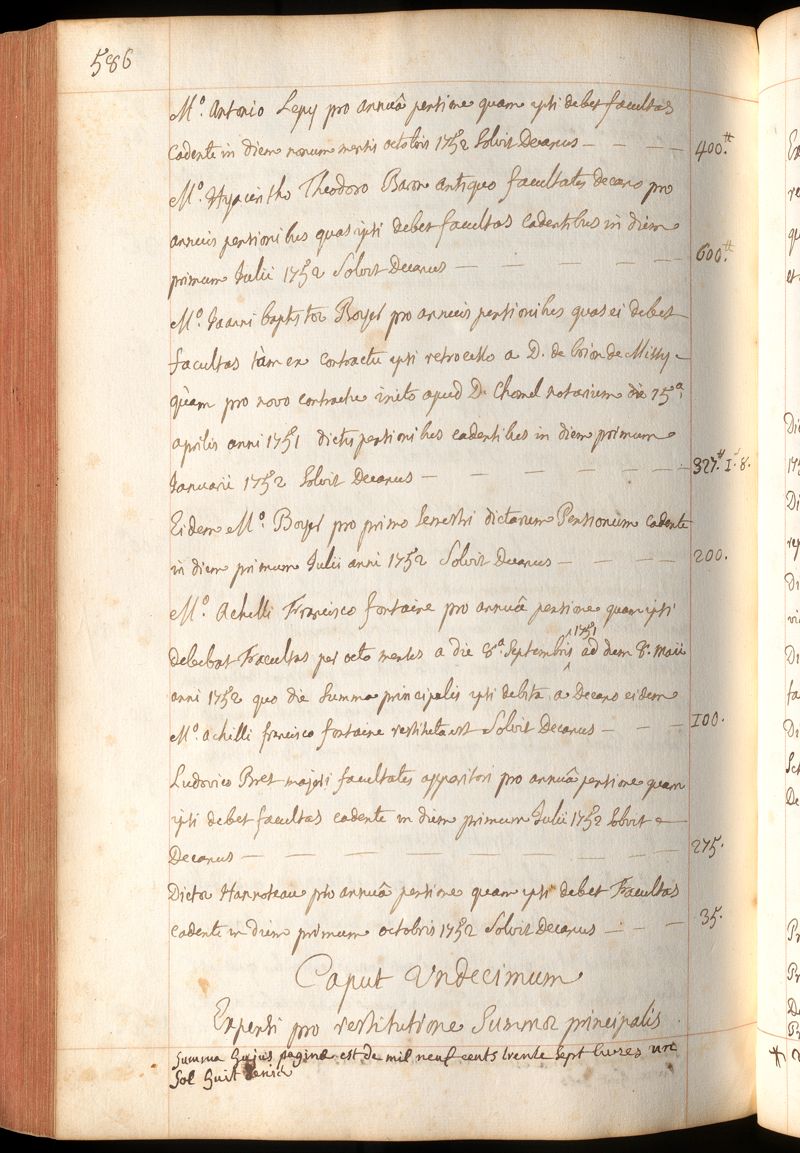 586
M.o Antonio Lepy pro annuâ pensione quam ipsi debet facultas
cadente in diem nonum mensis octobris 1752 Solvit Decanus — — — — 400.tt
M.o Hyacintho Theodoro Baron antiquo facultatis decano pro
annuis pensionibus quas ipsi debet facultas cadentibus in diem
primum Julii 1752 Solvit Decanus — — — — — 600.tt
M.o Joanni baptistæ Boyer pro annuis pensionibus quas ei debet
facultas tàm ex contractu ipsi retrocesso a D. de brion de Missy
quàm pro novo contractu inito apud D. Chomel notarium die 15.a
aprilis anni 1751 dictis pensionibus cadentibus in diem primum
Januarii 1752 Solvit Decanus — — — — — 327.tt 1.s 8.
Eidem M.o Boyer pro primo Semestri dictarum Pensionum cadente
in diem primum Julii anni 1752 Solvit Decanus — — — — 200.
M.o Achilli Francisco fontaine pro annuâ pensione quam ipsi
debebat Facultas per octo menses a die 8.a Septembris 1751 ad diem 8. maii
anni 1752 quo die Summa principalis ipsi debita a Decano eidem
M.o achilli francisco fontaine restituta est Solvit Decanus — — — 100.
Ludovico Bret majori facultatis apparitori pro annuâ pensione quam
ipsi debet facultas cadente in diem primum Julii 1752 Solvit
Decanus — — — — — — — 275.
Dictæ Hannoteau pro annuâ pensione quam ipsi debet Facultas
cadente in diem primum octobris 1752 Solvit Decanus — — — 35.
Caput Undecimum
Expensi pro restitutione Summæ principalis
Summa hujus paginæ est de mil neuf cents trente sept livres un
Sol huit deniers